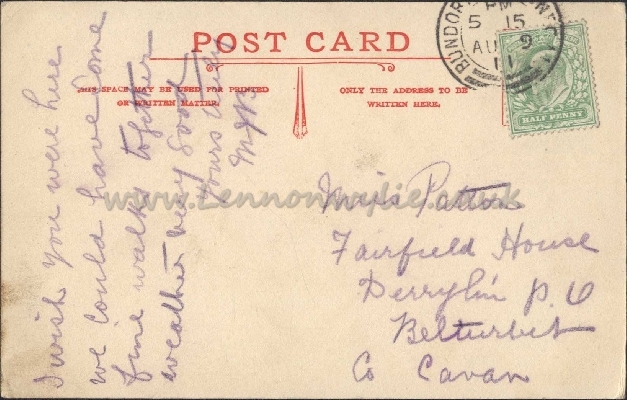 POST CARD
THIS SPACE MAY BE USED FOR PRINTED
OR WRITTEN MATTER.
ONLY THE ADDRESS TO BE
WRITTEN HERE.
5 15 PM
AU 9
11
HALF PENNY
I wish you were here
we could have some
fine walks together
weather very good
Yours
Miss Patton
Fairfield House
Derrylin P.O
Belturbet
Co Cavan